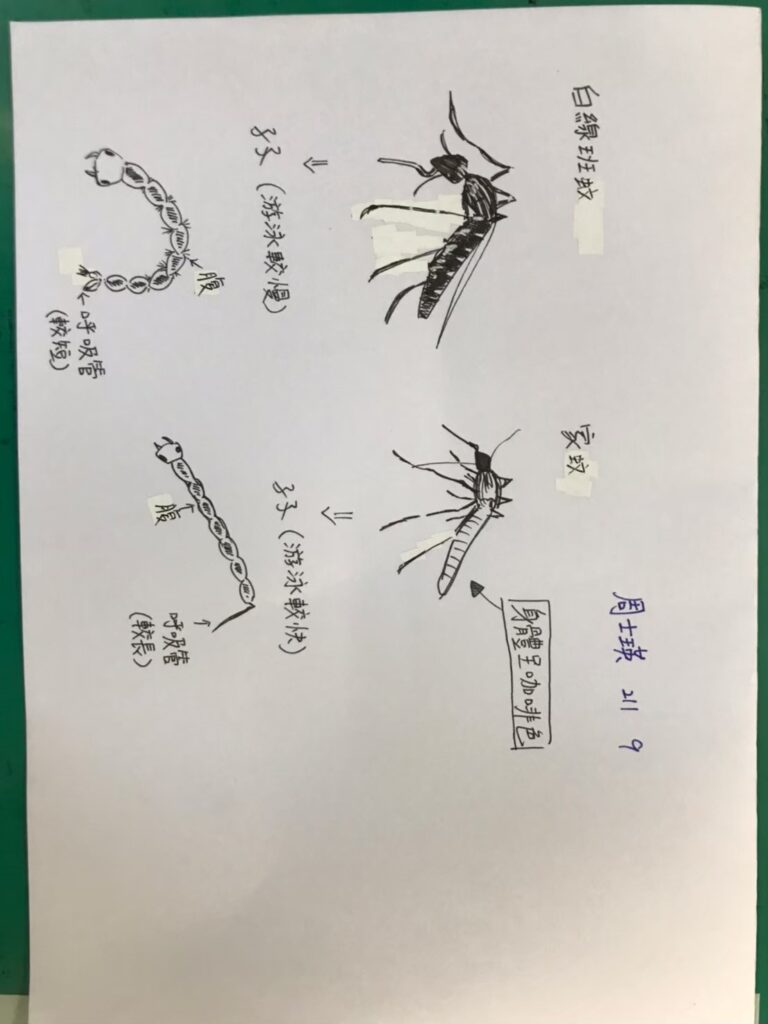 周士瑛 211 9
白線班蚊
家蚊
身體呈咖啡色
⇓
⇓
孑孓 (游泳較慢)
孑孓 (游泳較快)
腹
腹
呼吸管
(較短)
呼吸管
(較長)